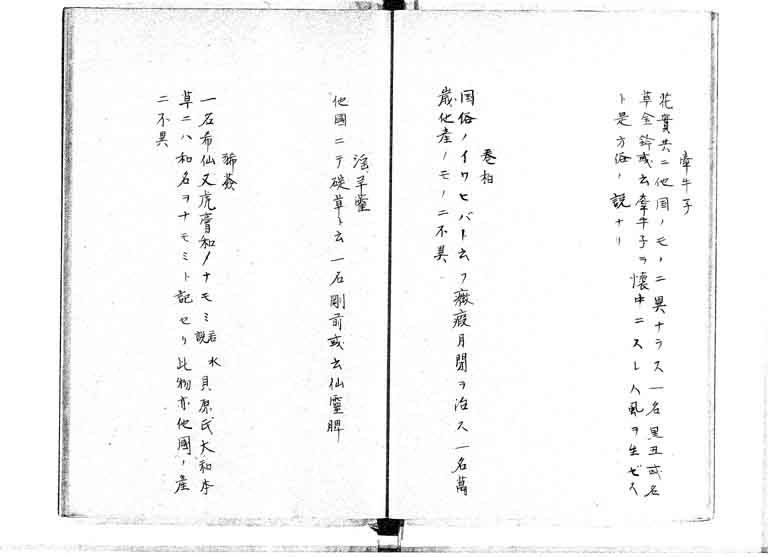 牽牛子
花實共ニ他国ノモノニ異ナラス一名黒丑或名
草金鈴或云牽牛子ヲ懐中ニスレハ風ヲ生ゼス
ト是方俗ノ説ナリ
巻柏
国俗ノイワヒバト云フ癥瘕月閉ヲ治ス一名萬
歳他産ノモノニ不異
淫羊藿
他國ニテ碇草ト云一名剛前或云仙靈脾
豨薟
一名希仙又虎膏和ノナモミ若水説貝原氏大和本
草ニハ和名ヲナモミト記セリ此物亦他國ノ産
ニ不異